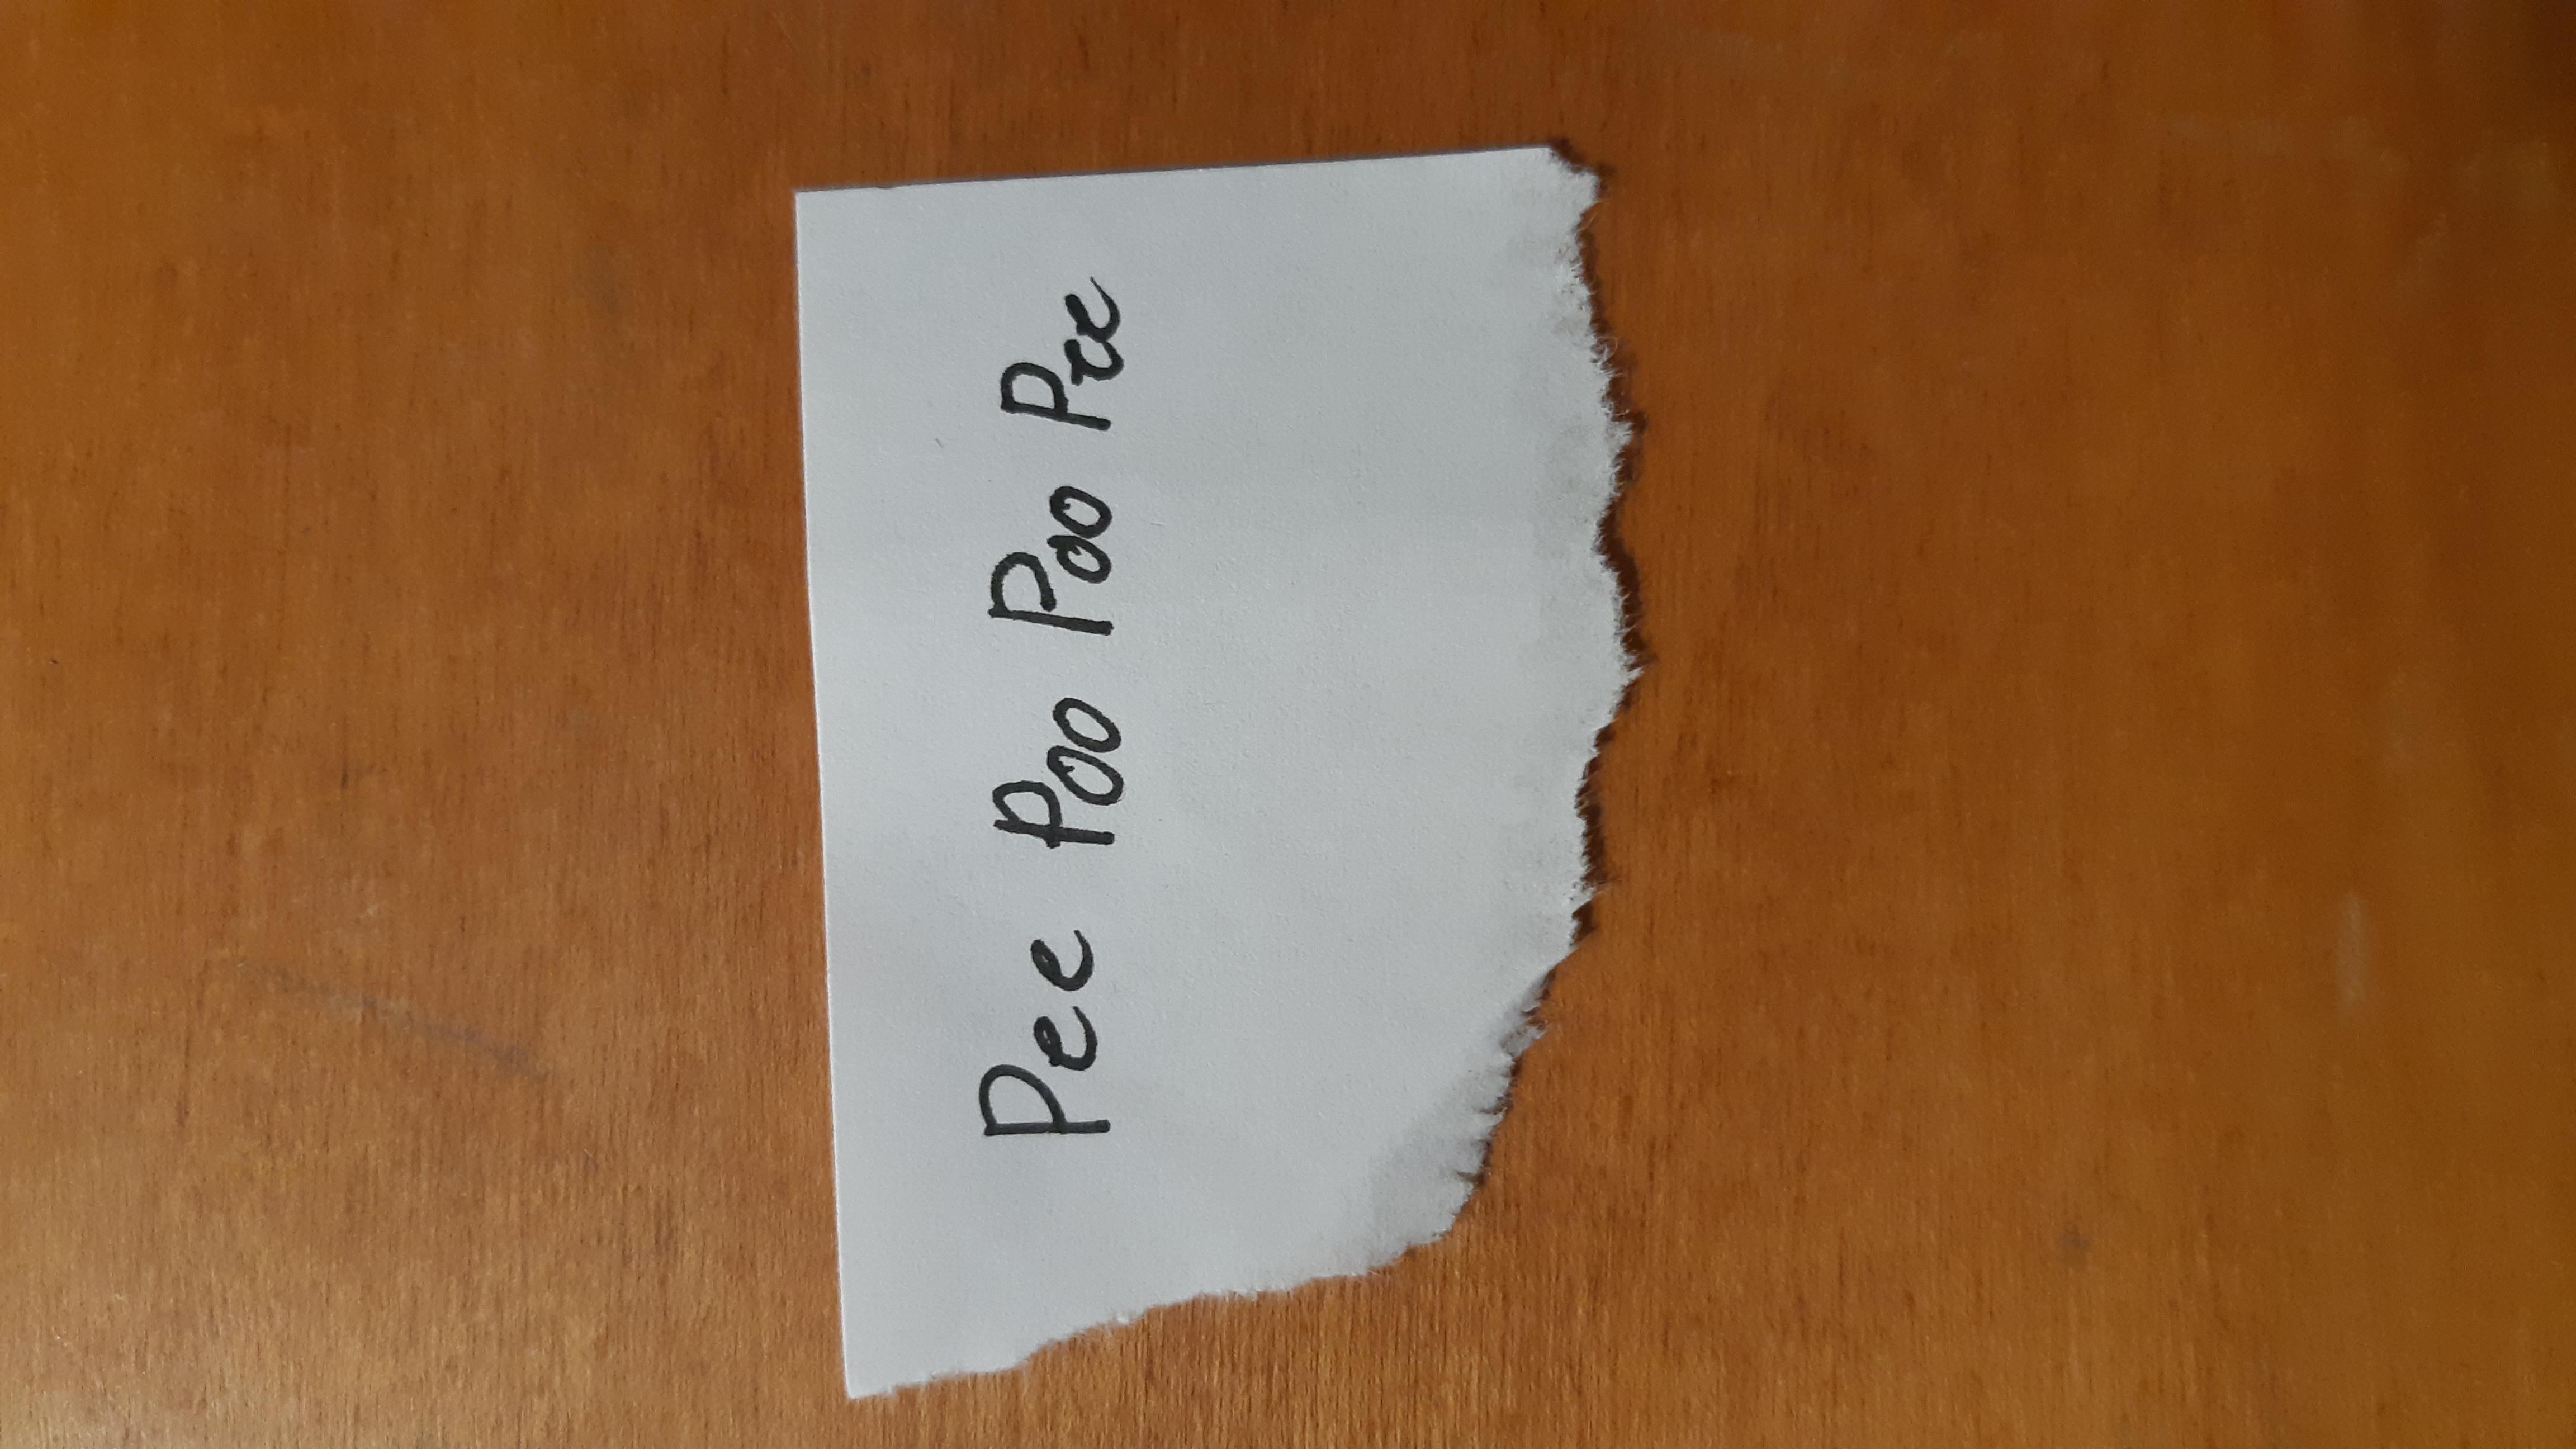 Pee Poo Poo Pee